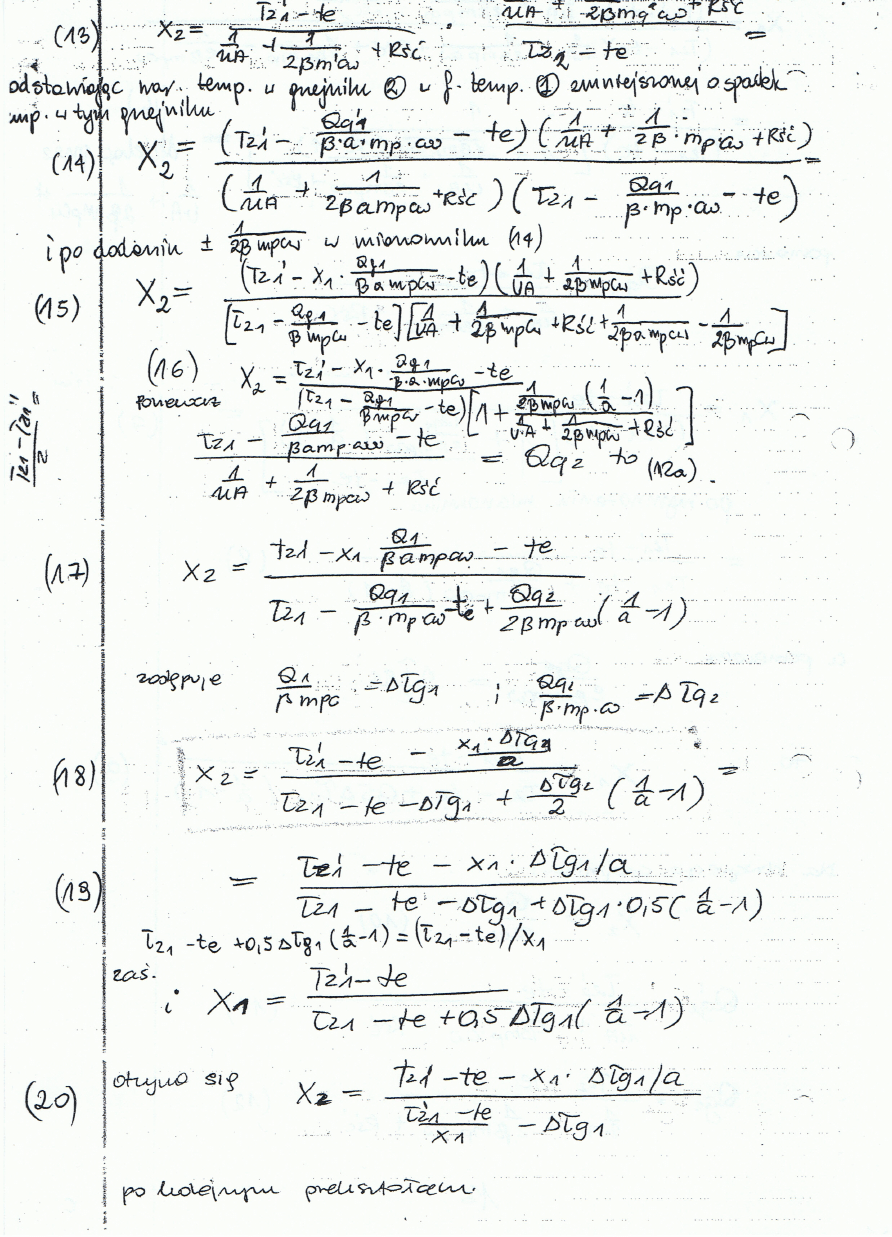 (13) X₂ = (Tz1' - te) / (1/uA + 1/(2βm'cω) + Rść) · (1/uA + 1/(2βmg'cω) + Rść) / (Tz2 - te) =
odstawiając war. temp. w grzejniku ② w f. temp. ① zmniejszonej o spadek
mp. w tym grzejniku
(14) X₂ = (Tz1' - Qg1'/(β·a·mp·cω) - te)(1/uA + 1/(2β·mp·cω) + Rść) / ((1/uA + 1/(2βampcω) + Rść)(Tz1 - Qg1/(β·mp·cω) - te)) =
i po dodaniu ± 1/(2βmpcω) w mianowniku (14)
(15) X₂ = (Tz1' - X1·Qg1/(βampcω) - te)(1/UA + 1/(2βmpcω) + Rść) / ([Tz1 - Qg1/(βmpcω) - te][1/UA + 1/(2βmpcω) + Rść + 1/(2βampcω) - 1/(2βmpcω)])
(16) X₂ = (Tz1' - X1·Qg1/(β·a·mpcω) - te) / ((Tz1 - Qg1/(βmpcω) - te)[1 + (1/(2βmpcω)(1/a - 1))/(1/U·A + 1/(2βmpcω) + Rść)])
ponieważ
(Tz1 - Qg1/(βamp·cω) - te) / (1/uA + 1/(2βmpcω) + Rść) = Qg2 to (12a).
(Tz1 - Tg1'')/2 =
(17) X₂ = (tz1 - X1 Q1/(βampcω) - te) / (Tz1 - Qg1/(β·mp·cω) - te + Qg2/(2βmpcω)(1/a - 1))
zastępuje Q1/(βmpc) = ΔTg1 i Qg2/(β·mp·cω) = ΔTg2
(18) X₂ = (Tz1' - te - X1·ΔTg1/a) / (Tz1 - te - ΔTg1 + ΔTg2/2 (1/a - 1)) =
(19) = (Tz1' - te - X1·ΔTg1/a) / (Tz1 - te - ΔTg1 + ΔTg1·0,5(1/a - 1))
Tz1 - te + 0,5ΔTg1(1/a - 1) = (Tz1 - te)/X1
zaś.
i X1 = (Tz1' - te) / (Tz1 - te + 0,5ΔTg1(1/a - 1))
(20) otrzyma się X₂ = (tz1' - te - X1·ΔTg1/a) / ((Tz1' - te)/X1 - ΔTg1)
po kolejnym przekształcen.